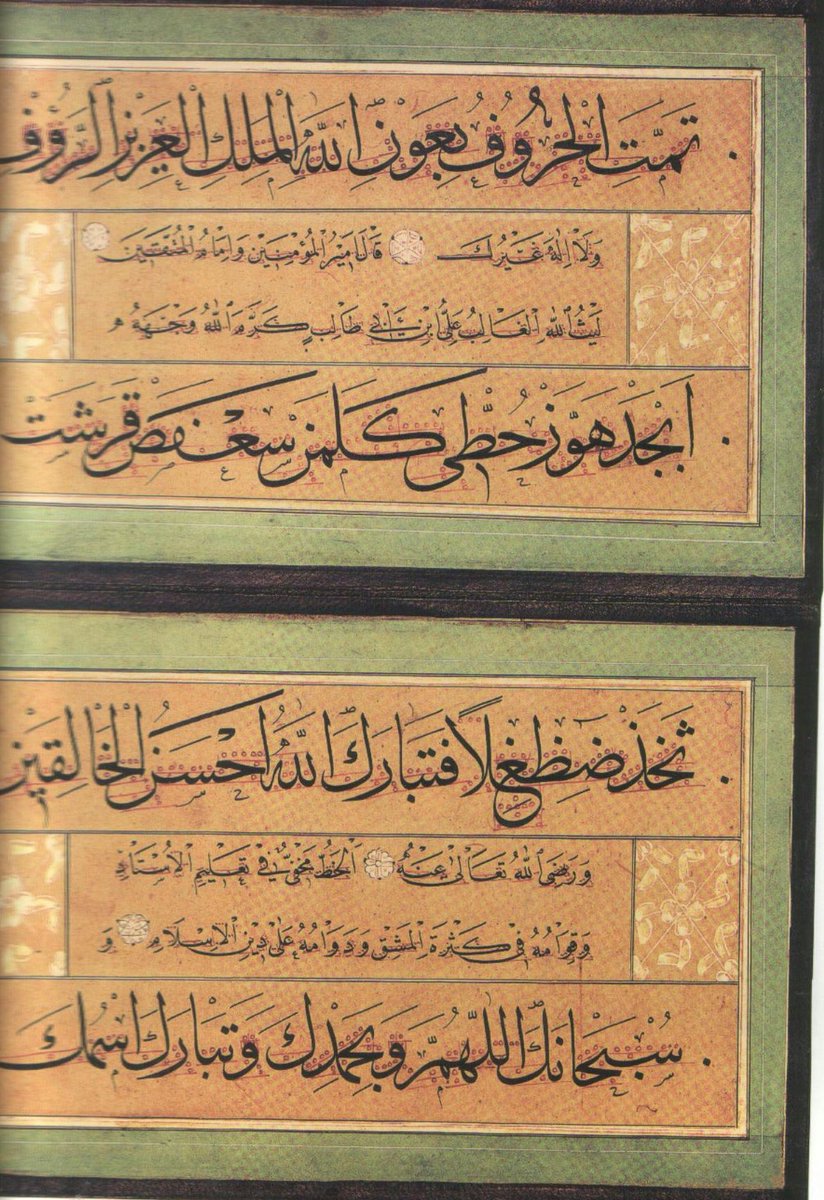 تمت الحروف بعون الله الملك العزيز الرؤف
ولا اله غيرك قال امير المؤمنين وامام المتقين
ليث الله الغالب علي ابن ابي طالب كرم الله وجهه
ابجد هوز حطي كلمن سعفص قرشت
ثخذ ضظغلا فتبارك الله احسن الخالقين
ورضي الله تعالى عنه الخط مخفي في تعليم الاستاذ
وقوامه في كثرة المشق ودوامه على دين الاسلام و
سبحانك اللهم وبحمدك وتبارك اسمك